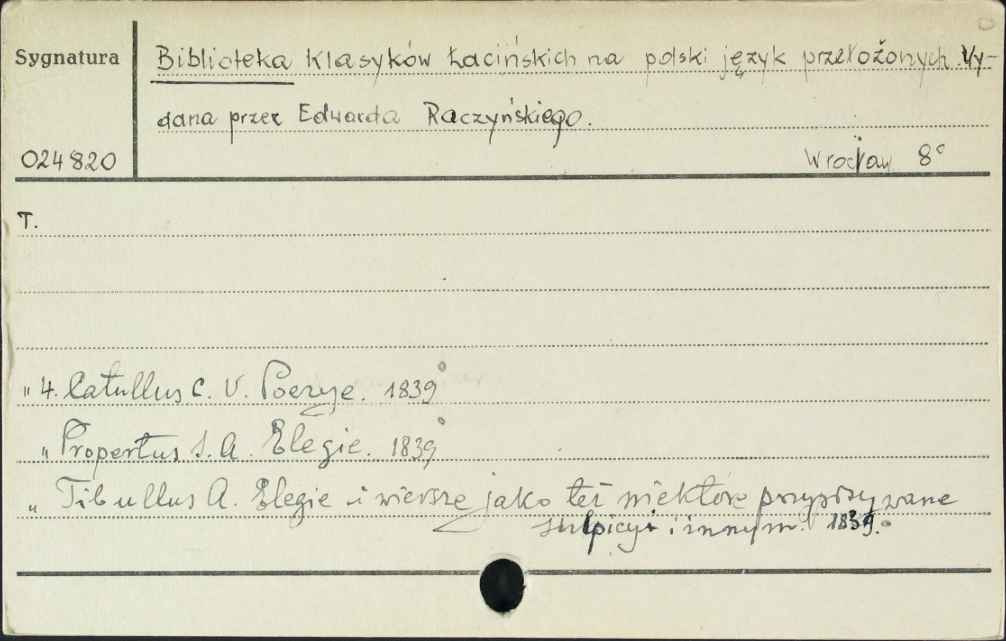 Sygnatura
Biblioteka Klasyków Łacińskich na polski język przełożonych Wy-
dana przez Edwarda Raczyńskiego.
024820
Wrocław 8°
T.
" 4. Catullus C. V. Poezye. 1839°
" Propertus S. A. Elegie. 1839°
" Tibullus A. Elegie i wiersze jako też niektóre przypisywane
Sulpicyi i innym. 1839.°